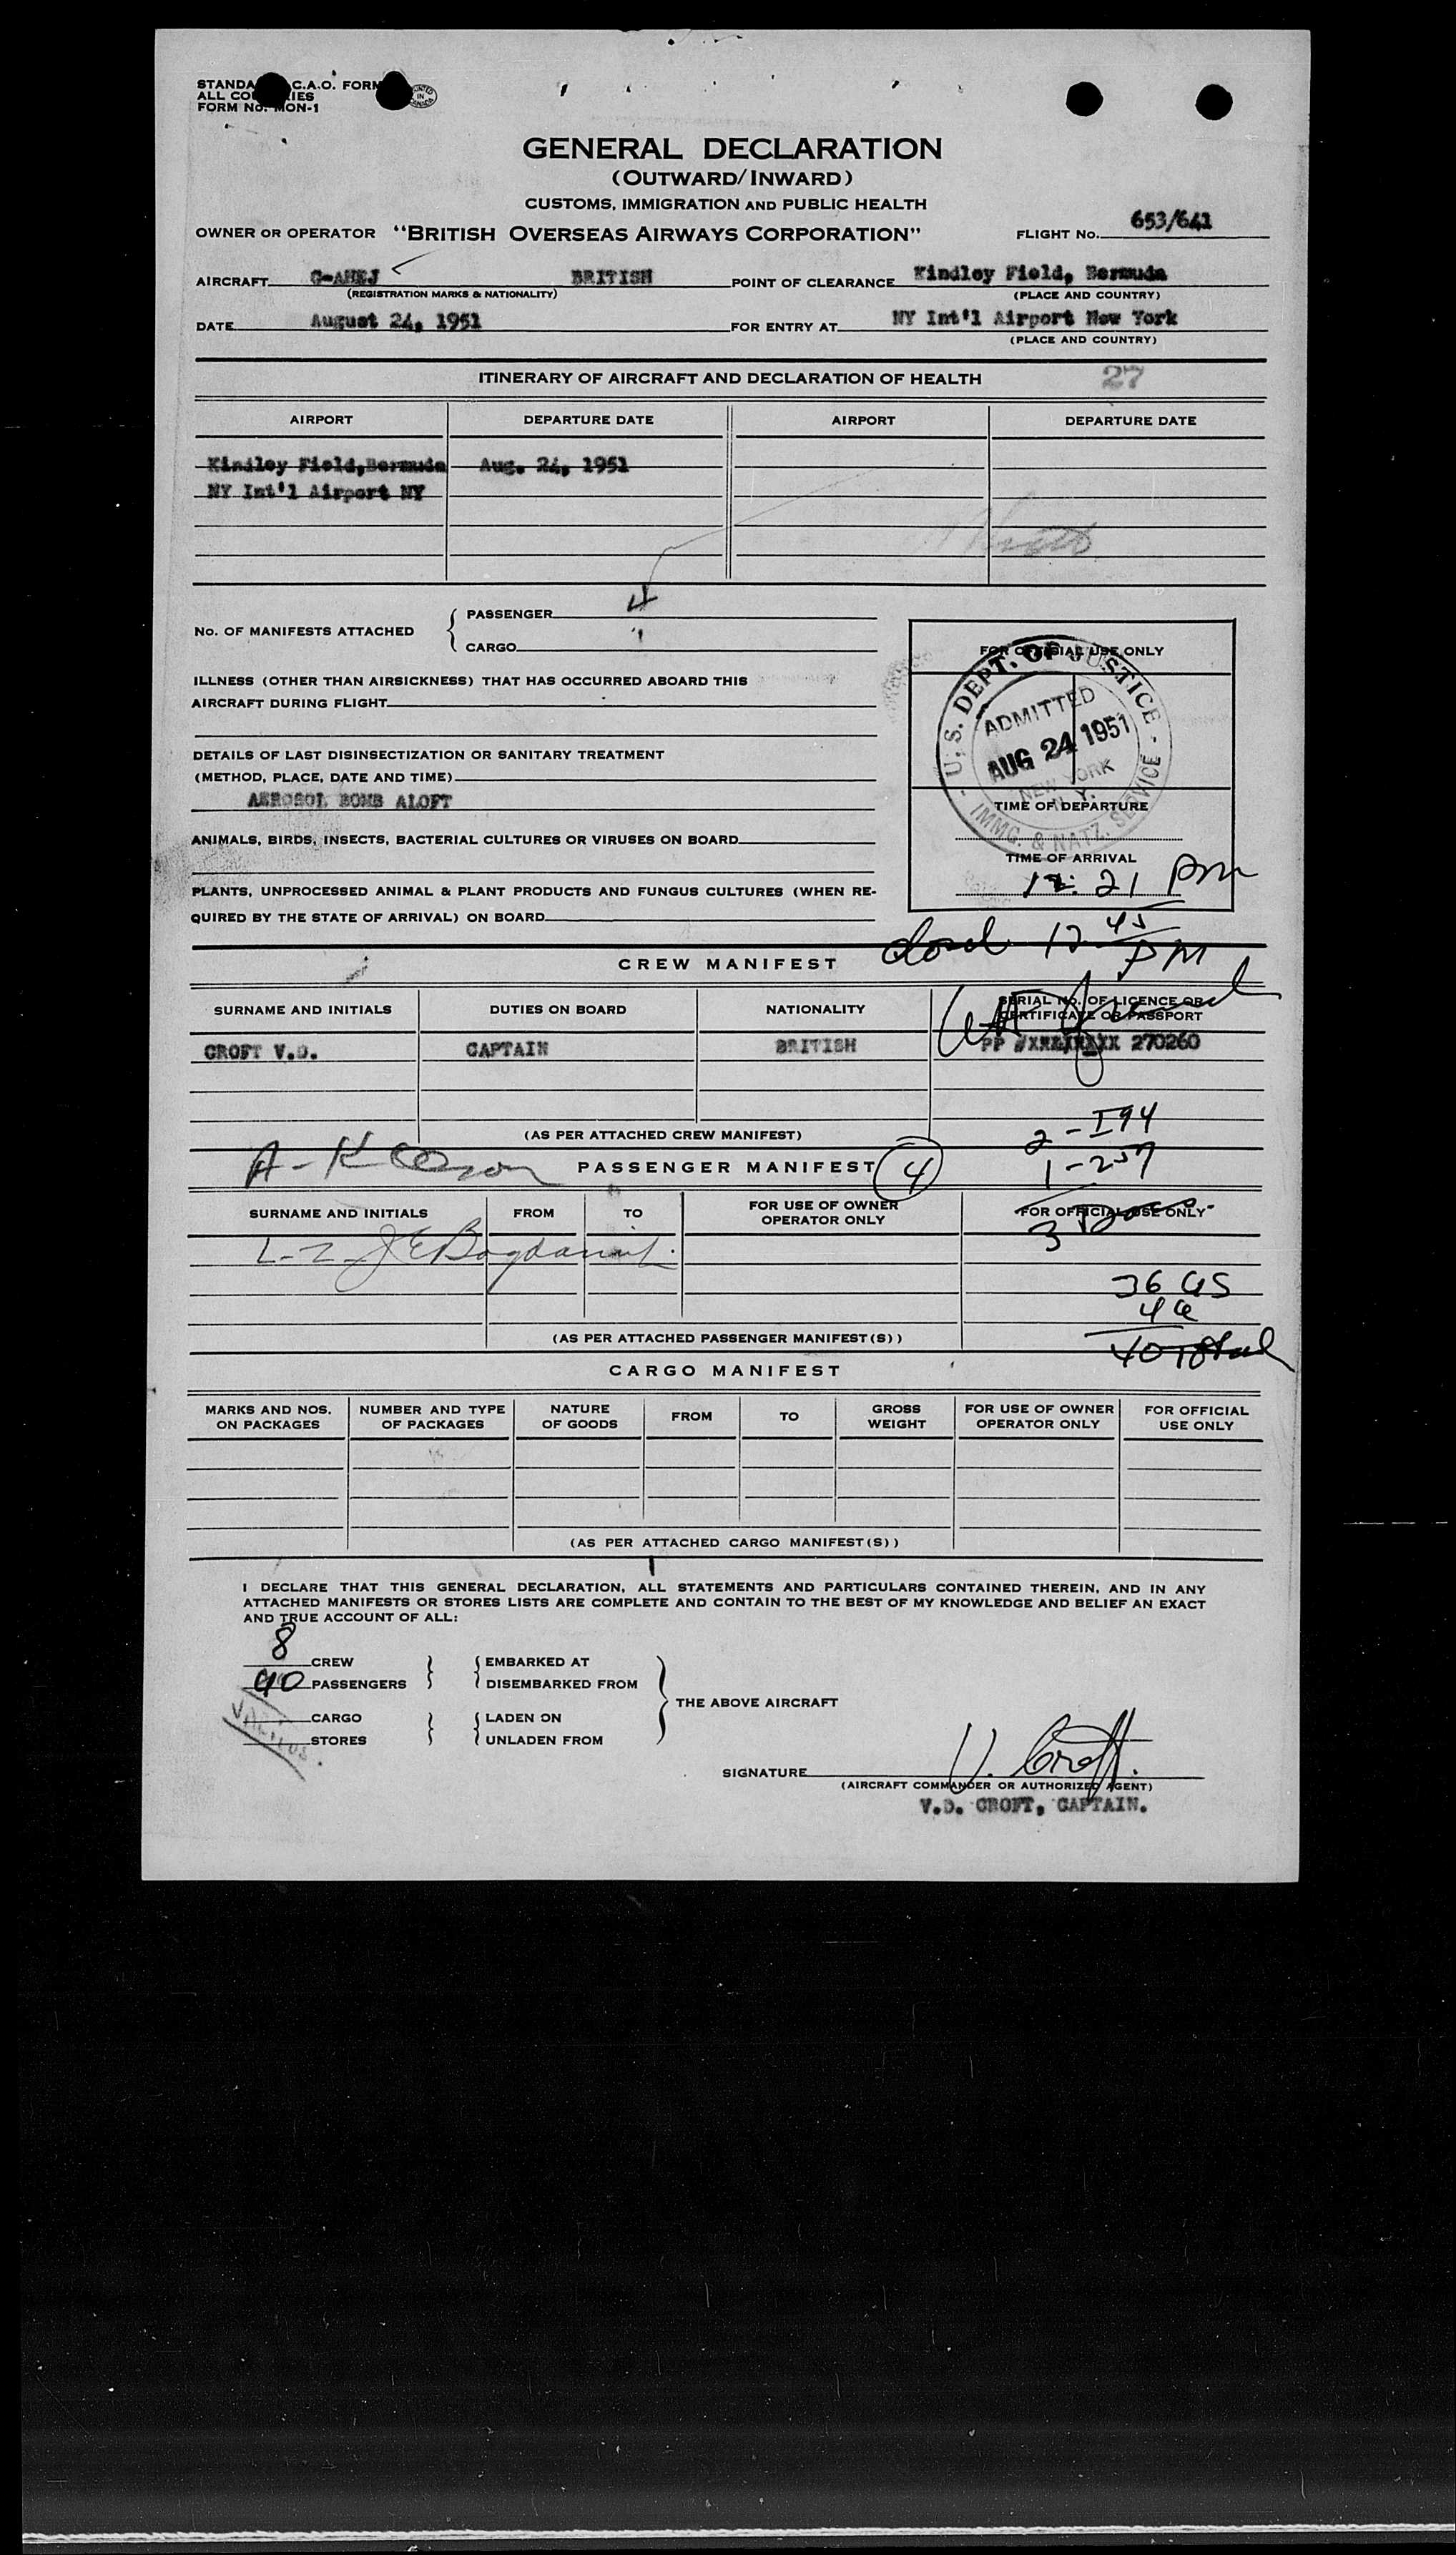 STANDA C.A.O. FORM
ALL CO RIES
FORM NO. MON-1
PRINTED IN CANADA
GENERAL DECLARATION
(OUTWARD/INWARD)
CUSTOMS, IMMIGRATION AND PUBLIC HEALTH
OWNER OR OPERATOR "BRITISH OVERSEAS AIRWAYS CORPORATION" FLIGHT NO. 653/641
AIRCRAFT G-AHEJ BRITISH POINT OF CLEARANCE Kindley Field, Bermuda
(REGISTRATION MARKS & NATIONALITY) (PLACE AND COUNTRY)
DATE August 24, 1951 FOR ENTRY AT NY Int'l Airport New York
(PLACE AND COUNTRY)
ITINERARY OF AIRCRAFT AND DECLARATION OF HEALTH 27
AIRPORT DEPARTURE DATE AIRPORT DEPARTURE DATE
Kindley Field,Bermuda Aug. 24, 1951
NY Int'l Airport NY
No. OF MANIFESTS ATTACHED
PASSENGER 4
CARGO 1
ILLNESS (OTHER THAN AIRSICKNESS) THAT HAS OCCURRED ABOARD THIS
AIRCRAFT DURING FLIGHT
DETAILS OF LAST DISINSECTIZATION OR SANITARY TREATMENT
(METHOD, PLACE, DATE AND TIME)
AEROSOL BOMB ALOFT
ANIMALS, BIRDS, INSECTS, BACTERIAL CULTURES OR VIRUSES ON BOARD
PLANTS, UNPROCESSED ANIMAL & PLANT PRODUCTS AND FUNGUS CULTURES (WHEN RE-
QUIRED BY THE STATE OF ARRIVAL) ON BOARD
FOR OFFICIAL USE ONLY
U. S. DEPT. OF JUSTICE
ADMITTED
AUG 24 1951
NEW YORK
N. Y.
IMMG. & NATZ. SERVICE
TIME OF DEPARTURE
TIME OF ARRIVAL
12: 21 PM
12 45 PM
CREW MANIFEST
SURNAME AND INITIALS DUTIES ON BOARD NATIONALITY SERIAL NO. OF LICENCE OR
CERTIFICATE OR PASSPORT
CROFT V.D. CAPTAIN BRITISH PP # 270260
(AS PER ATTACHED CREW MANIFEST)
2 - I94
1 - 257
PASSENGER MANIFEST 4
SURNAME AND INITIALS FROM TO FOR USE OF OWNER
OPERATOR ONLY FOR OFFICIAL USE ONLY
3
36 US
4 a
40 Total
(AS PER ATTACHED PASSENGER MANIFEST(S))
CARGO MANIFEST
MARKS AND NOS.
ON PACKAGES NUMBER AND TYPE
OF PACKAGES NATURE
OF GOODS FROM TO GROSS
WEIGHT FOR USE OF OWNER
OPERATOR ONLY FOR OFFICIAL
USE ONLY
(AS PER ATTACHED CARGO MANIFEST(S))
I DECLARE THAT THIS GENERAL DECLARATION, ALL STATEMENTS AND PARTICULARS CONTAINED THEREIN, AND IN ANY
ATTACHED MANIFESTS OR STORES LISTS ARE COMPLETE AND CONTAIN TO THE BEST OF MY KNOWLEDGE AND BELIEF AN EXACT
AND TRUE ACCOUNT OF ALL:
8 CREW EMBARKED AT
40 PASSENGERS DISEMBARKED FROM
THE ABOVE AIRCRAFT
CARGO LADEN ON
STORES UNLADEN FROM
SIGNATURE V. Croft.
(AIRCRAFT COMMANDER OR AUTHORIZED AGENT)
V.D. CROFT, CAPTAIN.